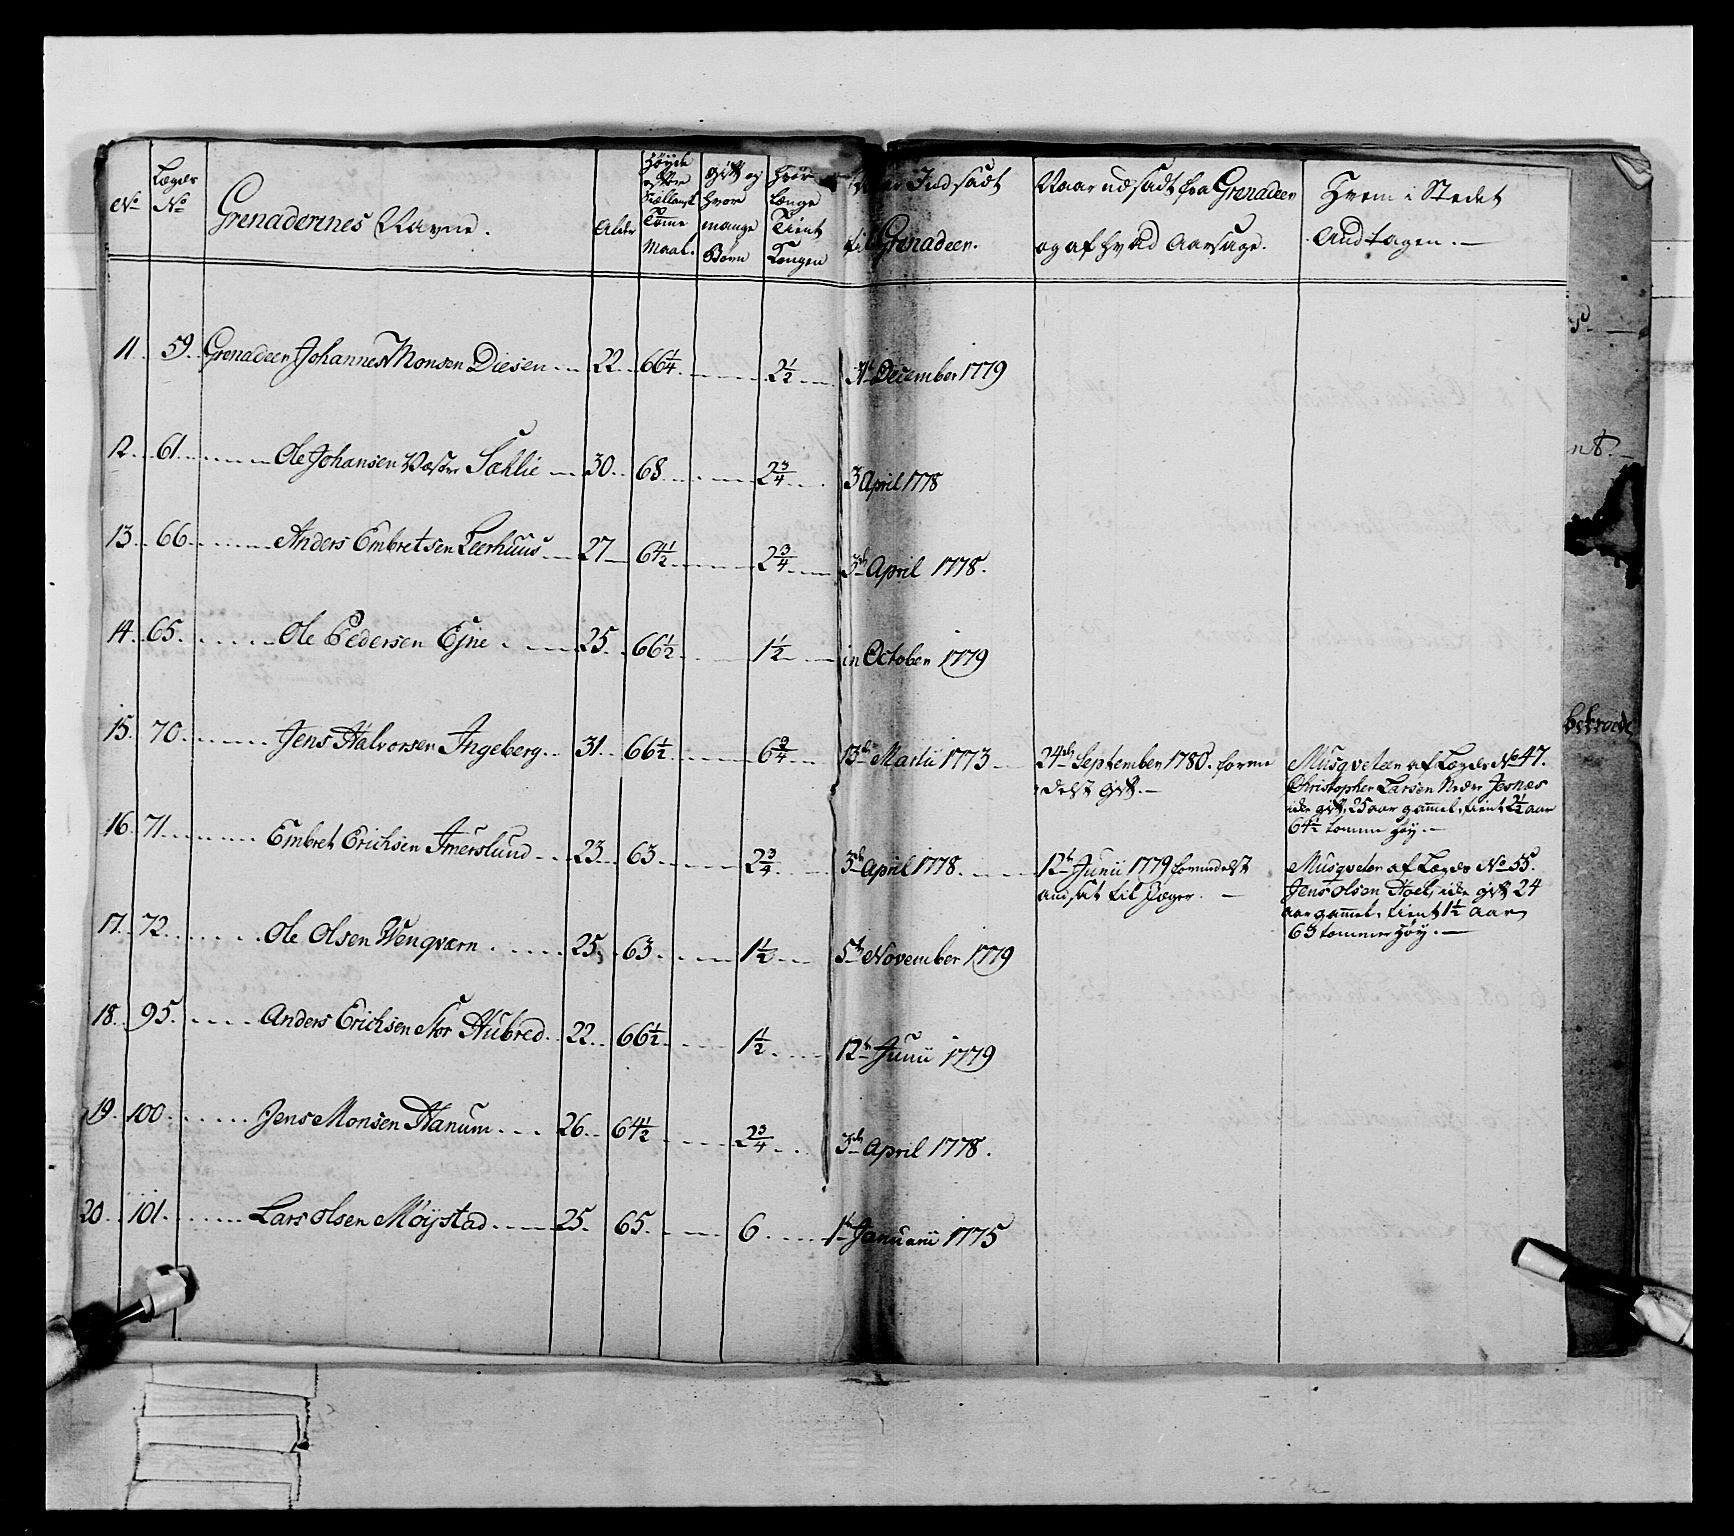 No
Lægds No
Grenaderernes Navne.
Alder
Høyde efter Siællansk Tomme Maal.
gift og hvor mange Børn
Hvor Længe Tient Kongen
Naar Indsadt til Grenadeer.
Naar udsadt fra Grenadeer og af hvad Aarsage.
Hvem i Stedet Andtagen.—
11. 59. Grenadeer Johannes Monsen Diesen 22 66¼ 2½ 3te December 1779
12. 61. Ole Johansen Væstre Sæhlie 30. 68 2¾ 3 April 1778
13. 66 Anders Embretsen Leerhuus 27 64½ 2¾ 3de April 1778.
14. 65. Ole Pedersen Ejne 25. 66½ 1½ in October 1779
15. 70. Jens Halvorsen Ingeberg 31. 66½ 6¾ 13de Martii 1773
24de September 1780. forme
delst gift.—
Musqveteer af Lægds No 47.
Christopher Larsen Nedre Jesnæs
icke gift, 25 aar gammel, tient 2½ aar
64½ tomme Høy.—
16. 71. Embret Erichsen Imerslund 23 63 2¾ 3de April 1778.
12te Junii 1779 formedelst
andsat til Jæger.—
Musqveteer af Lægds No 55.
Jens Olsen Hoel, icke gift 24
aar gammel, tient 1½ Aar,
63 tommer Høy.—
17. 72. Ole Olsen Wengværn 25. 63 1½ 5te November 1779
18. 95. Anders Erichsen Stor Hubred. 22. 66½ 1½ 12te Junii 1779
19. 100. Jens Monsen Hanum 26. 64½ 2¾ 3de April 1778.
20. 101. Lars Olsen Møystad 25. 65. 6. 1te Januarii 1775